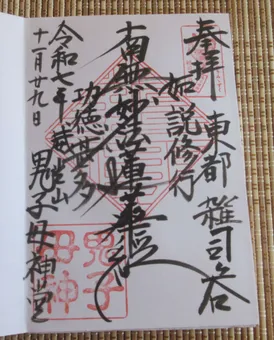 奉拝 東都 雑司谷
如説修行
南無妙法蓮華経
功徳甚多
威光山 鬼子母神堂
令和七年
十一月廿九日
鬼子
母神